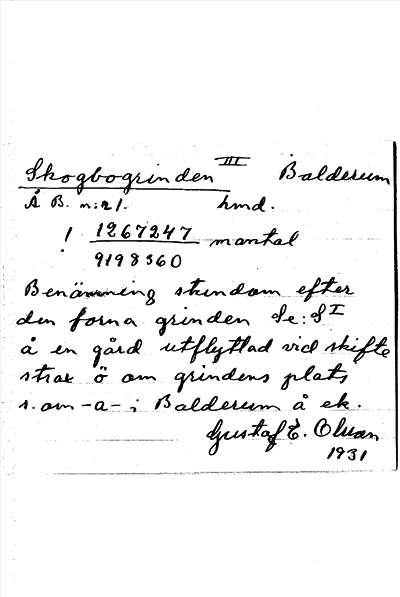 Skogbogrinden III Balderum
Å B. n:r 1. hmd.
! 1267247 mantal
9198360
Benämning stundom efter
den forna grinden Se: S I
å en gård utflyttad vid skifte
strax ö om grindens plats
s. om -a- i Balderum å ek.
Gustaf E. Olsson
1931